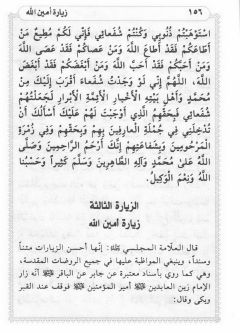 ١٥٦
زيارة أمين الله
اسْتَوْهَبْتُمْ ذُنُوبِي وَكُنْتُمْ شُفَعَائِي فَإِنِّي لَكُمْ مُطِيعٌ مَنْ
أَطَاعَكُمْ فَقَدْ أَطَاعَ اللَّهَ وَمَنْ عَصَاكُمْ فَقَدْ عَصَى اللَّهَ
وَمَنْ أَحَبَّكُمْ فَقَدْ أَحَبَّ اللَّهَ وَمَنْ أَبْغَضَكُمْ فَقَدْ أَبْغَضَ
اللَّهَ، اللَّهُمَّ إِنِّي لَوْ وَجَدْتُ شُفَعَاءَ أَقْرَبَ إِلَيْكَ مِنْ
مُحَمَّدٍ وَأَهْلِ بَيْتِهِ الْأَخْيَارِ الْأَئِمَّةِ الْأَبْرَارِ لَجَعَلْتُهُمْ
شُفَعَائِي فَبِحَقِّهِمُ الَّذِي أَوْجَبْتَ لَهُمْ عَلَيْكَ أَسْأَلُكَ أَنْ
تُدْخِلَنِي فِي جُمْلَةِ الْعَارِفِينَ بِهِمْ وَبِحَقِّهِمْ وَفِي زُمْرَةِ
الْمَرْحُومِينَ بِشَفَاعَتِهِمْ إِنَّكَ أَرْحَمُ الرَّاحِمِينَ وَصَلَّى
اللَّهُ عَلَى مُحَمَّدٍ وَآلِهِ الطَّاهِرِينَ وَسَلَّمَ كَثِيراً وَحَسْبُنَا
اللَّهُ وَنِعْمَ الْوَكِيلُ.
الزيارة الثالثة
زيارة أمين الله
قال العلّامة المجلسي: إنّها أحسن الزيارات متناً
وسنداً، وينبغي المواظبة عليها في جميع الروضات المقدسة،
وهي كما روي بأسناد معتبرة عن جابر عن الباقر أنّه زار
الإمام زين العابدين أمير المؤمنين فوقف عند القبر
وبكى وقال: